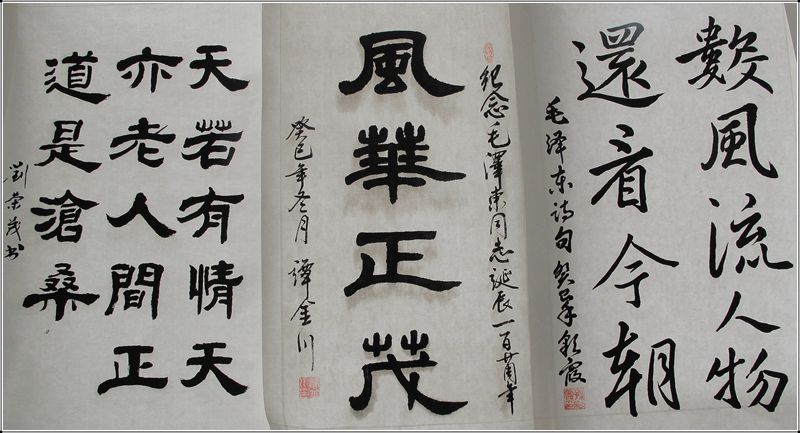 數風流人物
還看今朝
毛泽东诗句 癸巳
纪念毛澤東同志誕辰一百廿周年
風華正茂
癸巳年冬月 譚金川
天若有情天
亦老人間正
道是滄桑
劉荣茂书